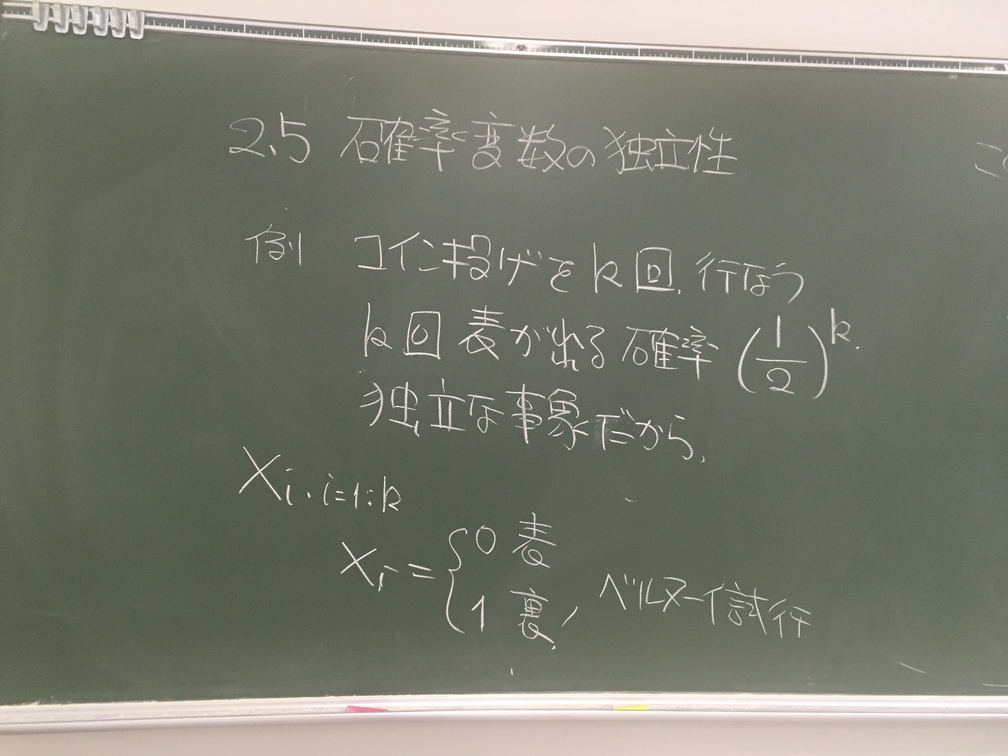 2.5 確率変数の独立性
例 コイン投げをk回、行なう
k回表が出る確率 (1/2)^k.
独立な事象だから、
X_i. i=1:k
X_i = { 0 表
1 裏, ベルヌーイ試行
こ